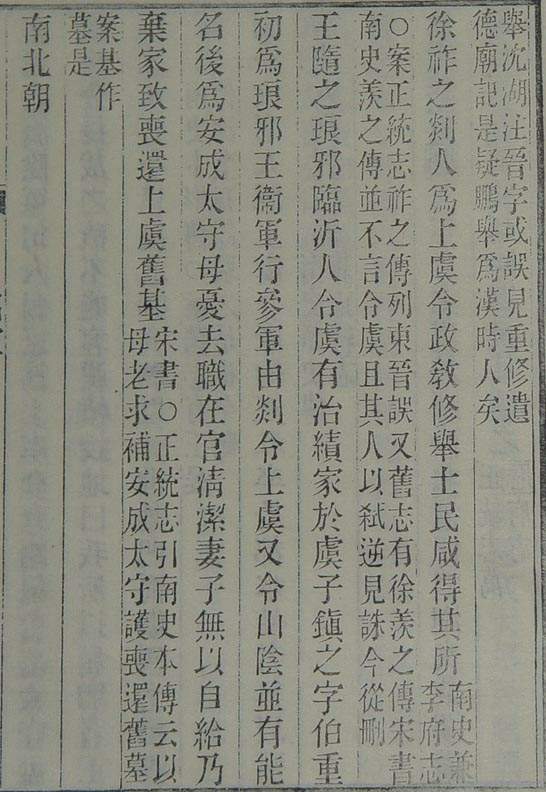 舉沈湖注晉字或誤見重修遺
德廟記是疑鵬舉爲漢時人矣
徐祚之剡人爲上虞令政教修舉士民咸得其所南史兼
李府志
○案正統志祚之傳列東晉誤又舊志有徐羨之傳宋書
南史羨之傳並不言令虞且其人以弒逆見誅今從刪
王隨之琅邪臨沂人令虞有治績家於虞子鎮之字伯重
初爲琅邪王衞軍行參軍由剡令上虞又令山陰並有能
名後爲安成太守母憂去職在官清潔妻子無以自給乃
棄家致喪還上虞舊基宋書○正統志引南史本傳云以
母老求補安成太守護喪還舊墓
案基作
墓是
南北朝